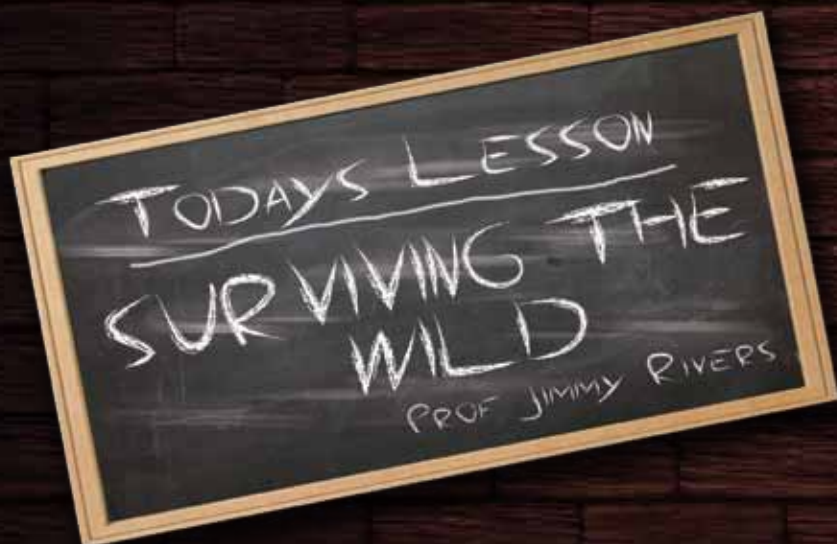 TODAYS LESSON
SURVIVING THE
WILD
PROF JIMMY RIVERS